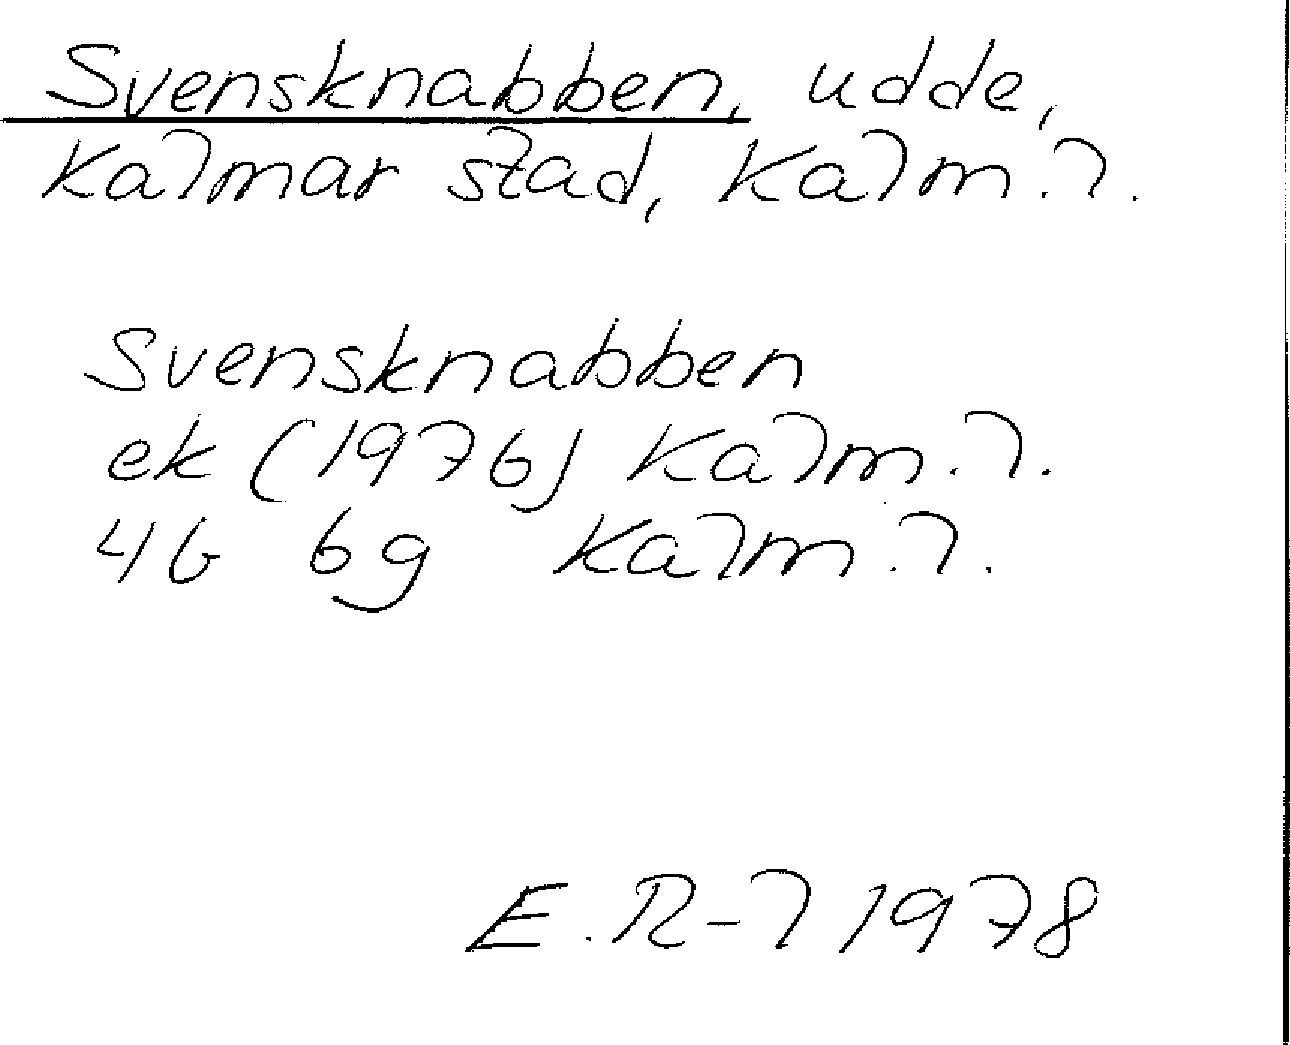 Svensknabben, udde,
Kalmar stad, Kalm.l.
Svensknabben
ek (1976) Kalm.l.
4G 6g Kalm.l.
E.R-l 1978